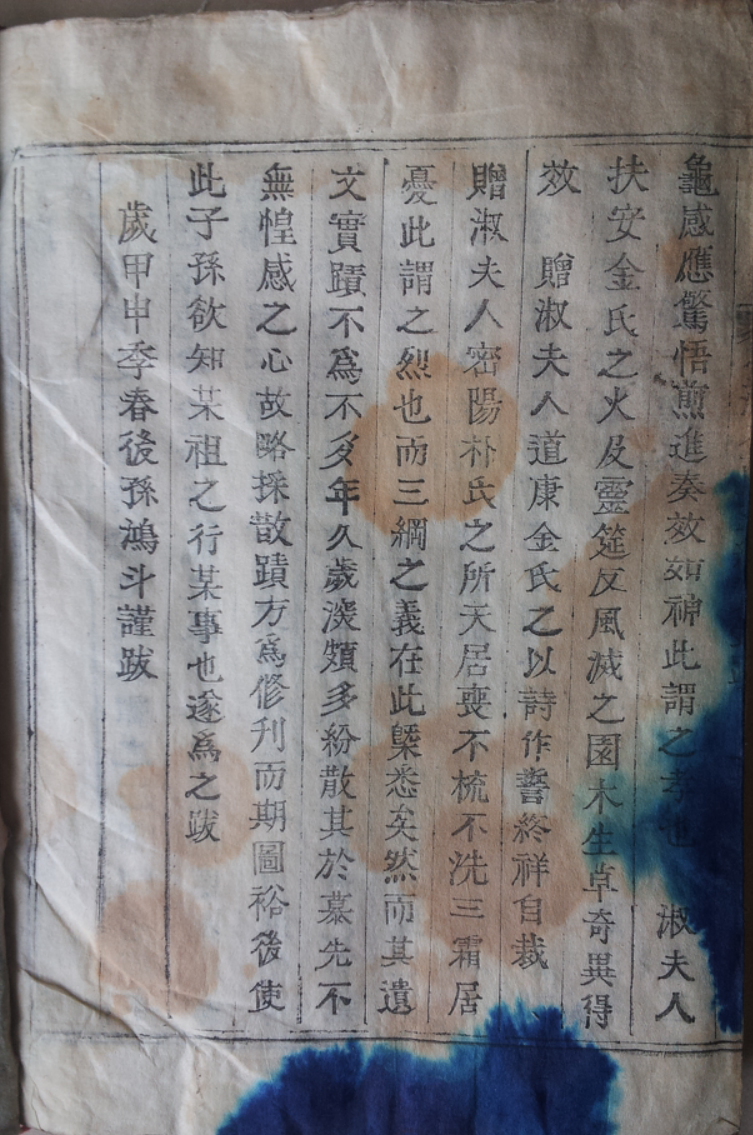 龜感應驚悟煎進奏效如神此謂之孝也 淑夫人
扶安金氏之火及靈筵反風滅之園木生草奇異得
效 贈淑夫人道康金氏之以詩作誓終祥自裁
贈淑夫人密陽朴氏之所天居喪不梳不洗三霜居
憂此謂之烈也而三綱之義在此槩悉矣然而其遺
文實蹟不爲不多年久歲深頗多紛散其於慕先不
無惶感之心故略採散蹟方爲修刊而期圖裕後使
此子孫欲知某祖之行某事也遂爲之跋
歲甲申季春後孫鴻斗謹跋